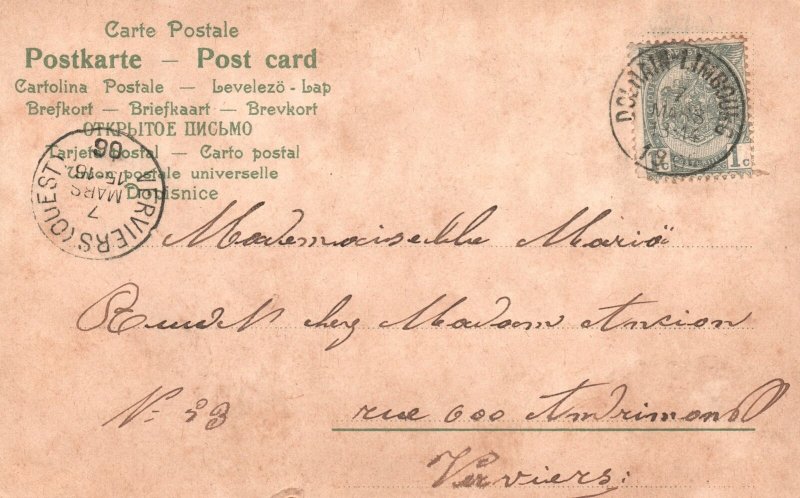 Carte Postale
Postkarte — Post card
Cartolina Postale — Levelező - Lap
Brefkort — Briefkaart — Brevkort
ОТКРЫТОЕ ПИСЬМО
Tarjeta postal — Carto postal
Union postale universelle
Dopisnice
DOLHAIN-LIMBOURG
7
MARS
1 c
VERVIERS (OUEST)
7
MARS
06
Mademoiselle Maria
chez Madam Ancion
No 23
rue Andrimont
Verviers: